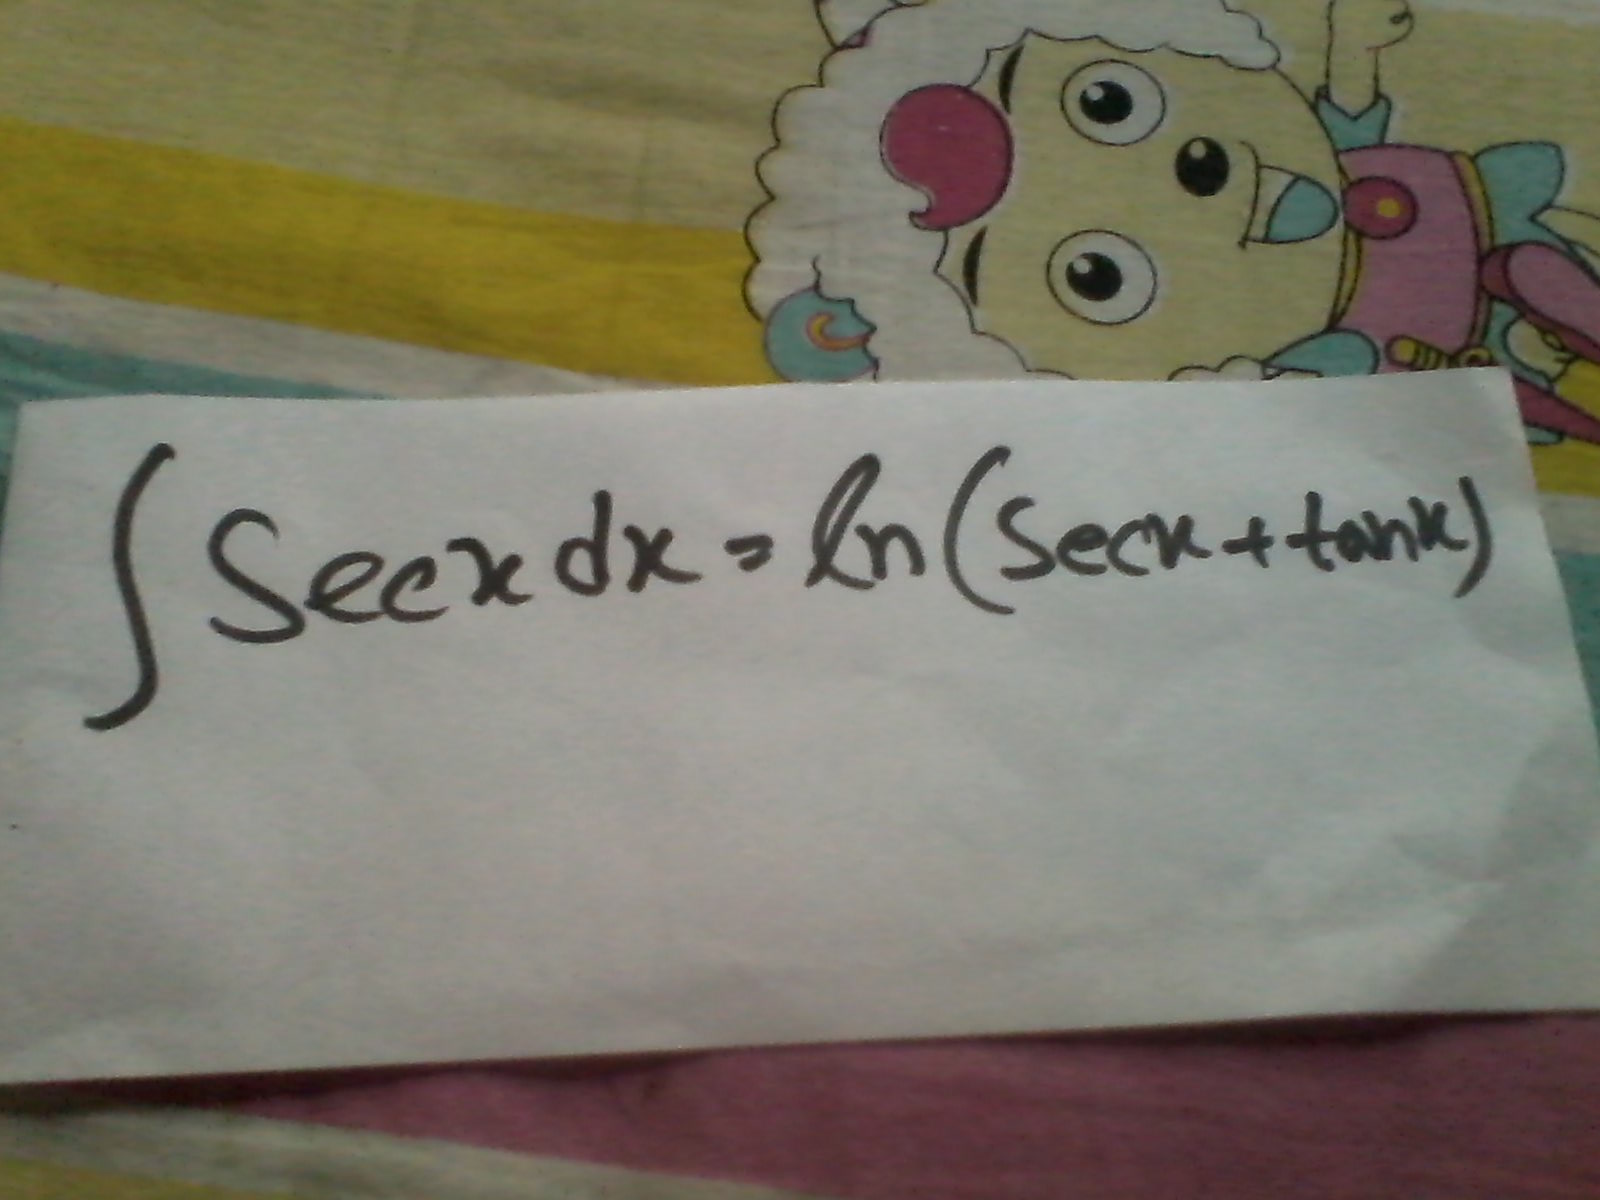 ∫ Secx dx = ln(Secx + tanx)